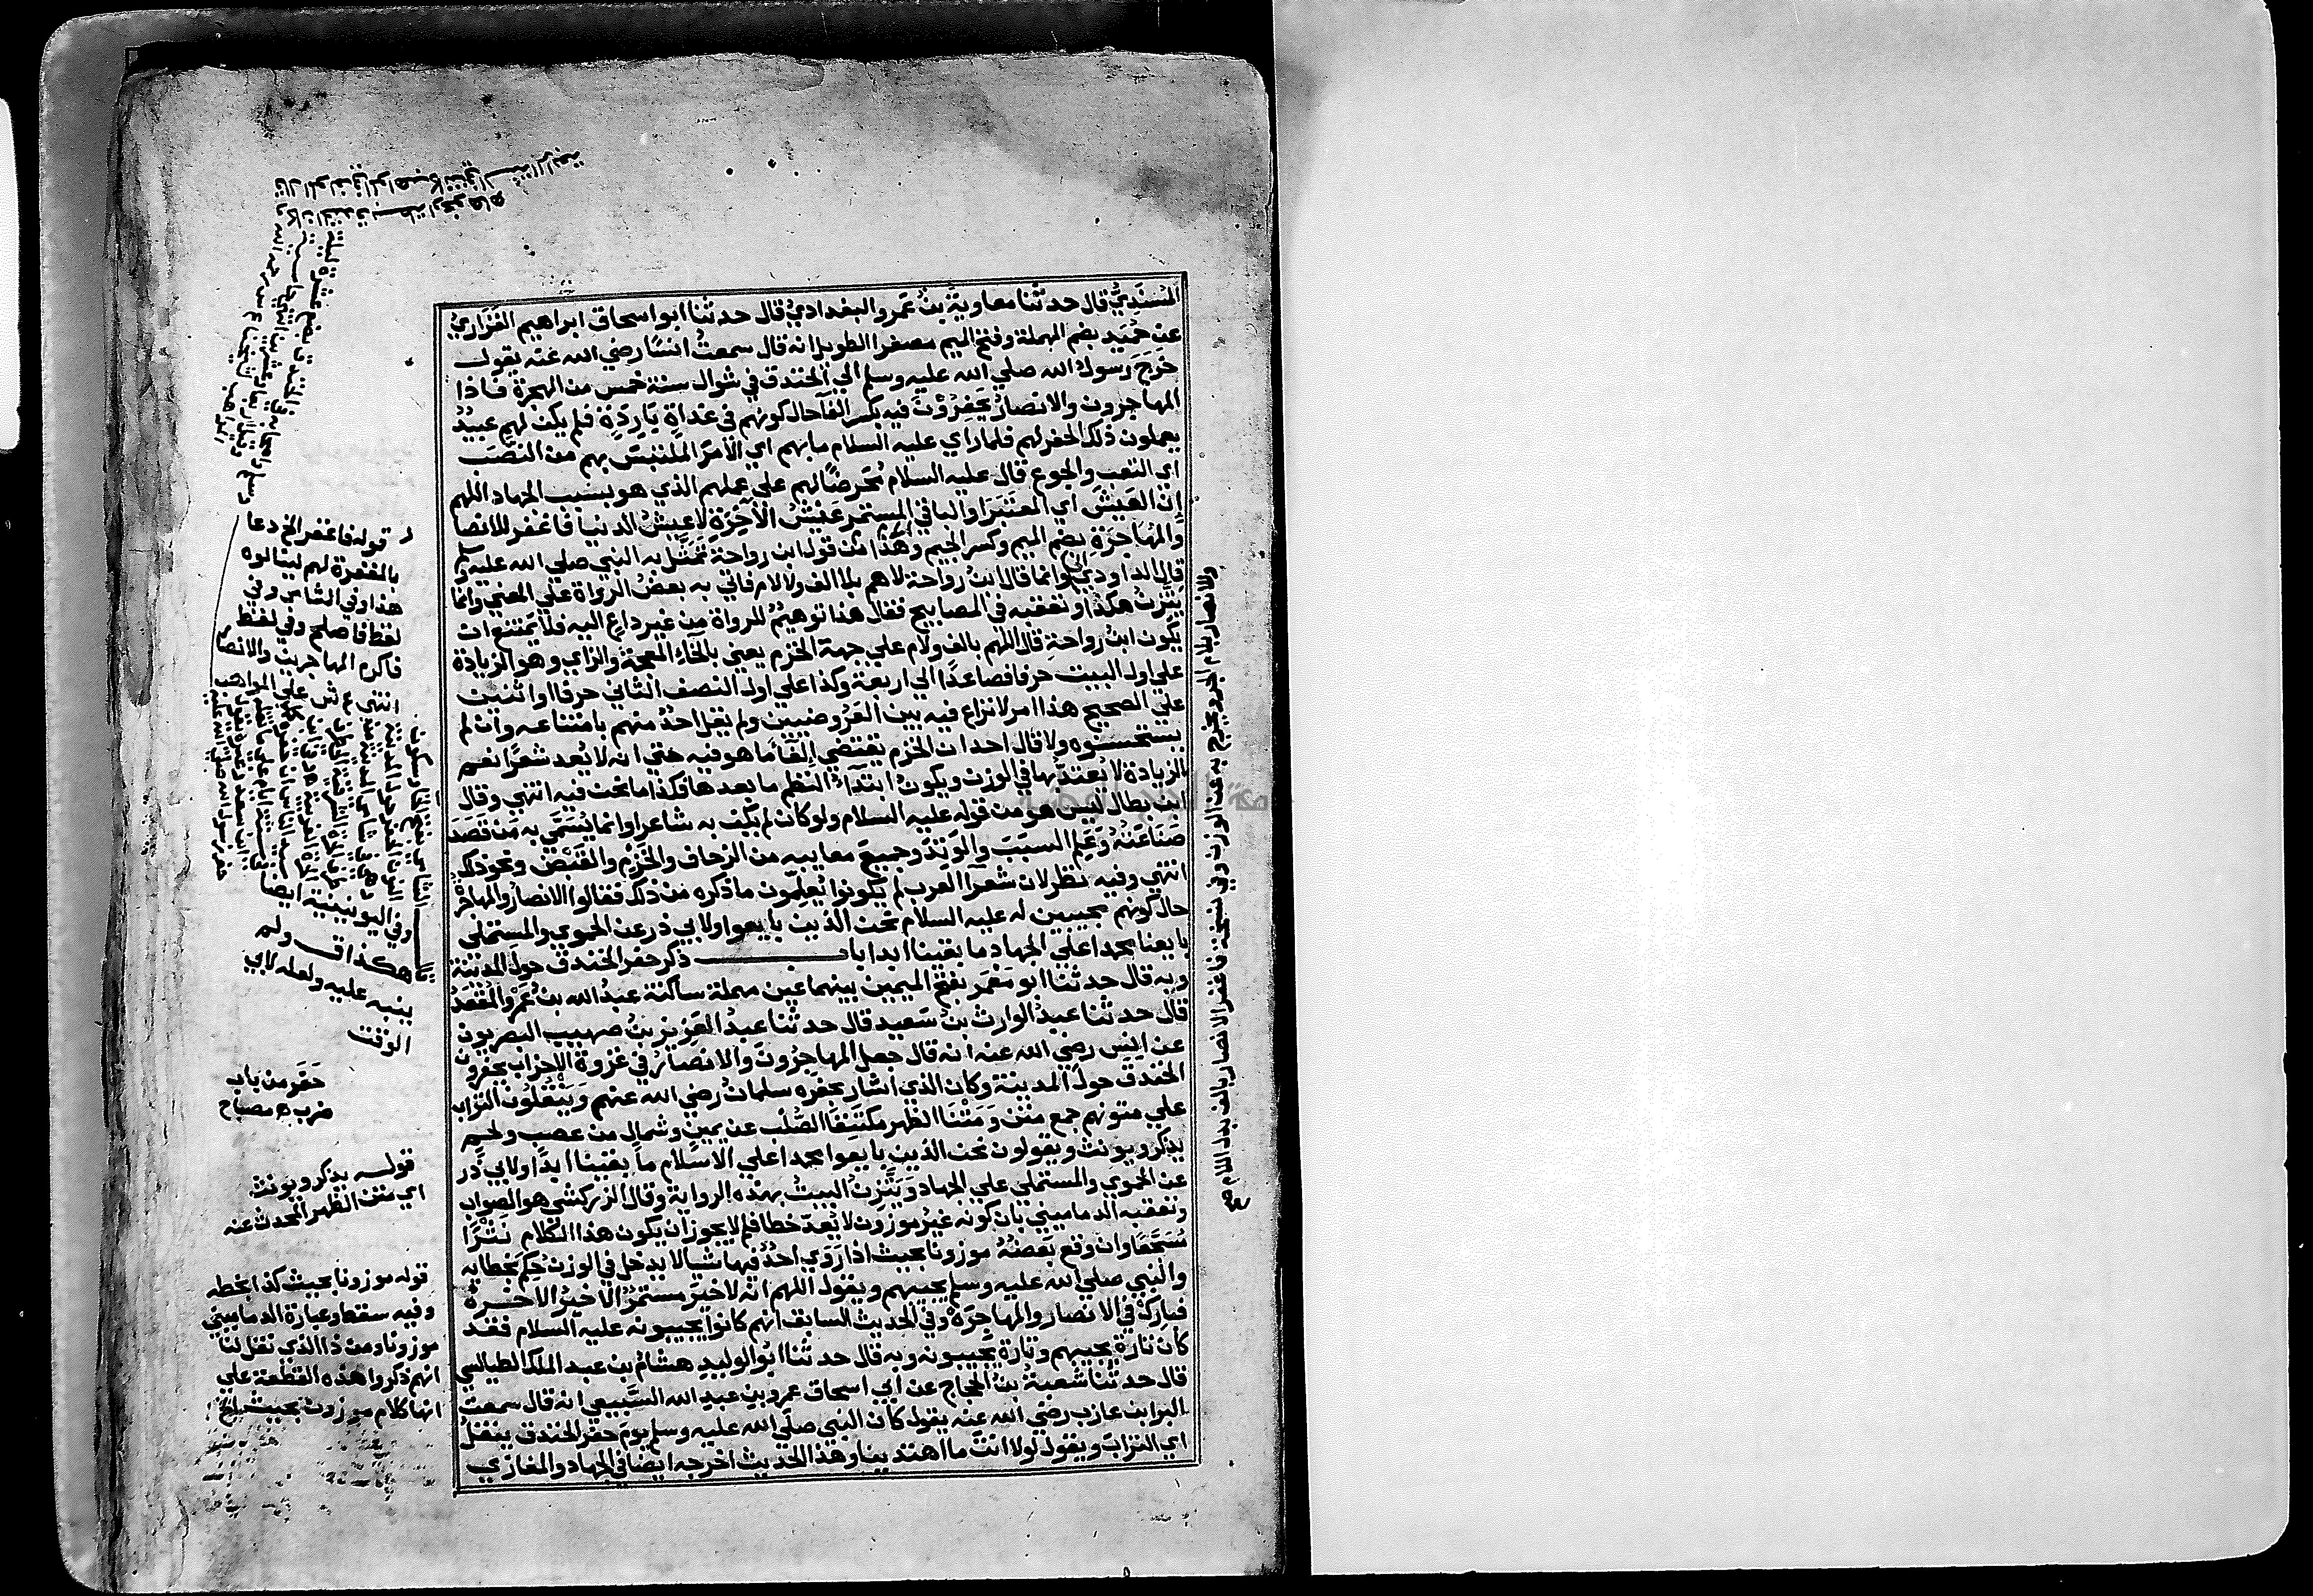 المُسنَدِيُّ قال حدثنا معاوية بن عَمرو البغدادي قال حدثنا ابو اسحاق ابراهيم الفَزَاري
عن حُمَيد بضم المهملة وفتح الميم مصغرا الطويل انه قال سمعتُ انسًا رضي الله عنه يقول
خَرَجَ رسولُ الله صلي الله عليه وسلم الي الخندق في شوال سنة خمس من الهجرة فاذا
المهاجرون والانصارُ يَحفِرُونَ فيه بكسر الفآ حال كونهم في غداةٍ بَارِدَةٍ فلم يكن لهم عبيدٌ
يعملون ذلك الحفر لهم فلما راي عليه السلام ما بهم اي الامرَ الملتبسَ بهم من النصَب
اي التعب والجوع قال عليه السلام مُحَرضًا لهم علي عملهم الذي هو بسبب الجهاد اللهم
إن العَيشَ اي المعتَبَرَ او الباقي المستمر عَيْشُ الآخِرَةِ لا عيش الدنيا فاغفر للانصا
والمُهاجِرَةِ بضم الميم وكسر الجيم وهذا من قول ابن رواحة تمَثَّل به النبي صلي الله عليه وسلم
قال الداودي وانما قال ابن رواحة لاهم بلا الف ولا لام فاتي به بعضُ الرواة علي المعني وانما
يتّزن هكذا وتعقبه في المصابيح فقال هذا توهيمٌ للرواة من غير داعٍ اليه فلا يمتنع ان
يكون ابن رواحة قال اللهم بالف ولام علي جهة الخزم يعني بالخاء المعجمة والزاي وهو الزيادة
علي اول البيت حرفا فصاعدًا الي اربعة وكذا علي اول النصف الثاني حرفا او اثنين
علي الصحيح هذا امر لا نزاع فيه بين العَروضيين ولم يقل احدٌ منهم بامتناعه وان لم
يستحسنوه ولا قال احد ان الخزم يقتضي الغآ ما هو فيه حتي انه لا يُعد شعرًا نعم
الزيادة لا يُعتدُّ بها في الوزن ويكون ابتداءُ النظم ما بعدها فكذا ما نحن فيه انتهي وقال
ابن بطال ليس هو من قوله عليه السلام ولو كان لم يكن به شاعرا وانما يُسَمَّي به من قَصَدَ
صَنَاعَتَهُ وَعَلِمَ السبَبَ والوَتِدَ وجميعَ معايبه من الزحاف والخزم والقبض ونحو ذلك
انتهي وفيه نظر لان شعرآ العرب لم يكونوا يَعلمون ما ذكره من ذلك فقالوا الانصار والمهاجرة
حال كونهم مجيبين له عليه السلام نحن الذين بايعوا ولابي ذر عن الحموي والمستملي
بايعنا محمدا علي الجهاد ما بقينا ابدا باب ذكر حفر الخندق حولَ المدينة
وبه قال حدثنا ابو مَعْمَر بفتح الميمين بينهما عين مهملة ساكنة عبدُ الله بن عَمْرو المُقْعَدُ
قال حدثنا عبدُ الوارث بنُ سَعيد قال حدثنا عبدُ العَزيز بنُ صهيب البصريون
عن انس رضي الله عنه انه قال جعل المهاجرُونَ والانصارُ في غزوة الاحزاب يحفرون
الخندق حولَ المدينة وكان الذي اشار بحفره سلمان رضي الله عنهم وَيَنْقُلُونَ التُرَابَ
علي متونهم جمع متن وَمَتْنَا الظهر مُكتَنِفَا الصُّلْب عن يمينٍ وشمال من عصب ولحم
يذكر ويونث ويقولون نحن الذين بايعوا محمدا علي الاسلام ما بقينا ابدًا ولابي ذر
عن الحموي والمستملي علي الجهاد وَيَتَّزِنُ البيتُ بهذه الرواية وقال الزركشي هو الصواب
وتعقبه الدماميني بان كونه غيرَ موزون لا يُعدّ خطا فلم لا يجوز ان يكون هذا الكلام نَثْرًا
مُسَجَّعًا وان وقع بعضُهُ موزونا بحيث اذا رَوَي احدٌ فيها شيا لا يدخل في الوزن حُكِمَ بخطايه
والنبي صلي الله عليه وسلم يجيبهم ويقول اللهم انه لا خيرَ مستمرٌّ الا خيرُ الاخره
فبارِكْ في الانصار والمهاجِرَه وفي الحديث السابق انهم كانوا يجيبونه عليه السلام فقد
كان تارةً يجيبهم وتارة يُجيبونه وبه قال حدثنا ابُو الوليد هشامُ بن عبد الملك الطيالسي
قال حدثنا شُعبةُ بنُ الحجاج عن ابي اسحاق عمرو بن عبد الله السَّبيعي انه قال سمعت
البرا بن عازب رضي الله عنه يقول كان النبي صلي الله عليه وسلم يومَ حفر الخندق ينقلُ
اي الترابَ ويقول لولا انتَ ما اهتدينا وهذا الحديث اخرجه ايضا في الجهاد والمغازي
ولانصار بلام الجر ويخرج به عن الوزن وفي نسخة فاغفر الانصار بالف بدل اللام صح
قوله فاغفر الخ دعا
بالمغفرة لهم لينالوه
هذا وفي الشامي وفي
لفظ فاصلح وفي لفظ
فاكرم المهاجرين والانصار
انتهي ع ش علي المواهب
وفي اليونينية ايضا
هكذا ق ولم
ينبه عليه ولعله لابي
الوقت
حَفَر من باب
ضرب ه مصباح
قوله يذكر ويونث
اي متن الظهر المحدث عنه
قوله موزونا بحيث كذا بخطه
وفيه سقط وعبارة الدماميني
موزونا ومن ذا الذي نقل لنا
انهم ذكروا هذه القطعة علي
انها كلام موزون بحيث الخ